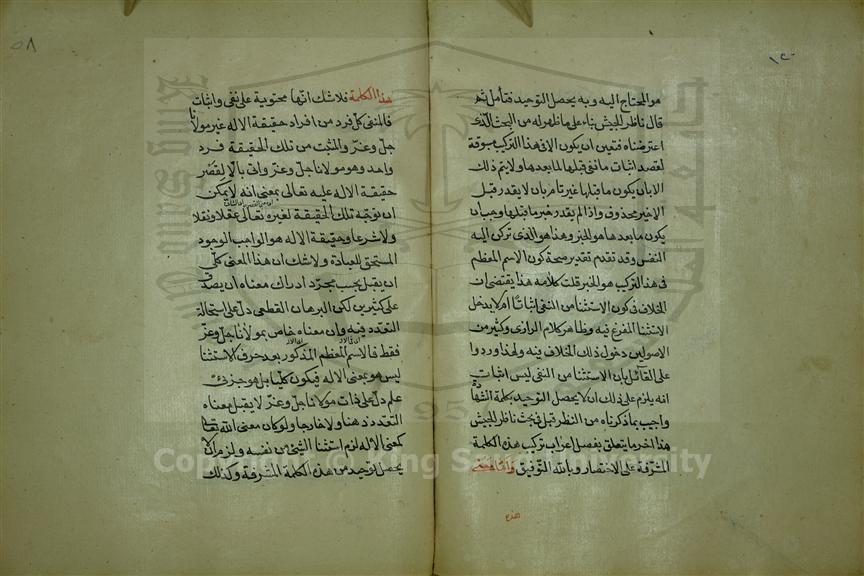 هو المحتاج اليه وبه يحصل التوحيد فتأمل ثم
قال ناظر الجيش بناء على ما ظهر له من البحث الذى
اعترضناه فتعين ان يكون الا فى هذا التركيب مسوقة
لقصد اثبات ما نفى قبلها لما بعدها ولا يتم ذلك
الا بان يكون ما قبلها غير تام بان لا يقدر قبل
الا خبر محذوف واذا لم يقدر خبر ما قبلها وجب ان
يكون ما بعدها هو الخبر وهذا هو الذى تركن اليه
النفس وقد تقدم تقدير صحة كون الاسم المعظم
فى هذا التركيب هو الخبر قلت كلامه هذا يقتضى ان
الخلاف فى كون الاستثنا من النفى اثباتا ام لا يدخل
الاستثنا المفرغ فيه وظاهر كلام الرازى وكثير من
الاصوليين دخول ذلك الخلاف فيه ولهذا وردوا
على القائل بان الاستثنا من النفى ليس اثبات
انه يلزم على ذلك ان لا يحصل التوحيد بكلمة الشهادة
واجيب بما ذكرناه من النظر قبل فى بحث ناظر الجيش
هذا اخر ما يتعلق بفصل اعراب تركيب هذه الكلمة
المشرفة على الاختصار وبالله التوفيق واما معنى
هذه
٥٨
هذه الكلمة فلا شك انها محتوية على نفى واثبات
فالمنفى كل فرد من افراد حقيقة الاله غير مولانا
جل وعز والمثبت من تلك الحقيقة فرد
واحد وهو مولانا جل وعز واتى بالا لقصر
حقيقة الاله عليه تعالى بمعنى انه لا يمكن
ان يوجد تلك الحقيقة لغيره تعالى عقلا ونقلا
ولا شرعا وحقيقة الاله هو الواجب الوجود
المستحق للعبادة ولا شك ان هذا المعنى كلى
ان يقبل بحسب مجرد ادراك معناه ان يصدق
على كثيرين لكن البرهان القطعى دل على استحالة
التعدد فيه وان معناه خاص بمولانا جل وعز
فقط فالاسم المعظم المذكور بعد حرف الاستثنا
ليس هو بمعنى الاله فيكون كليا بل هو جزئى
علم دل على ذات مولانا جل وعز لا يقبل معناه
التعدد ذهنا ولا خارجا ولو كان معنى الله تعالى
كمعنى الاله لزم استثنا الشئ من نفسه ولزم ان لا
يحصل توحيد من هذه الكلمة المشرفة وكذلك
Copyright © King Saud University